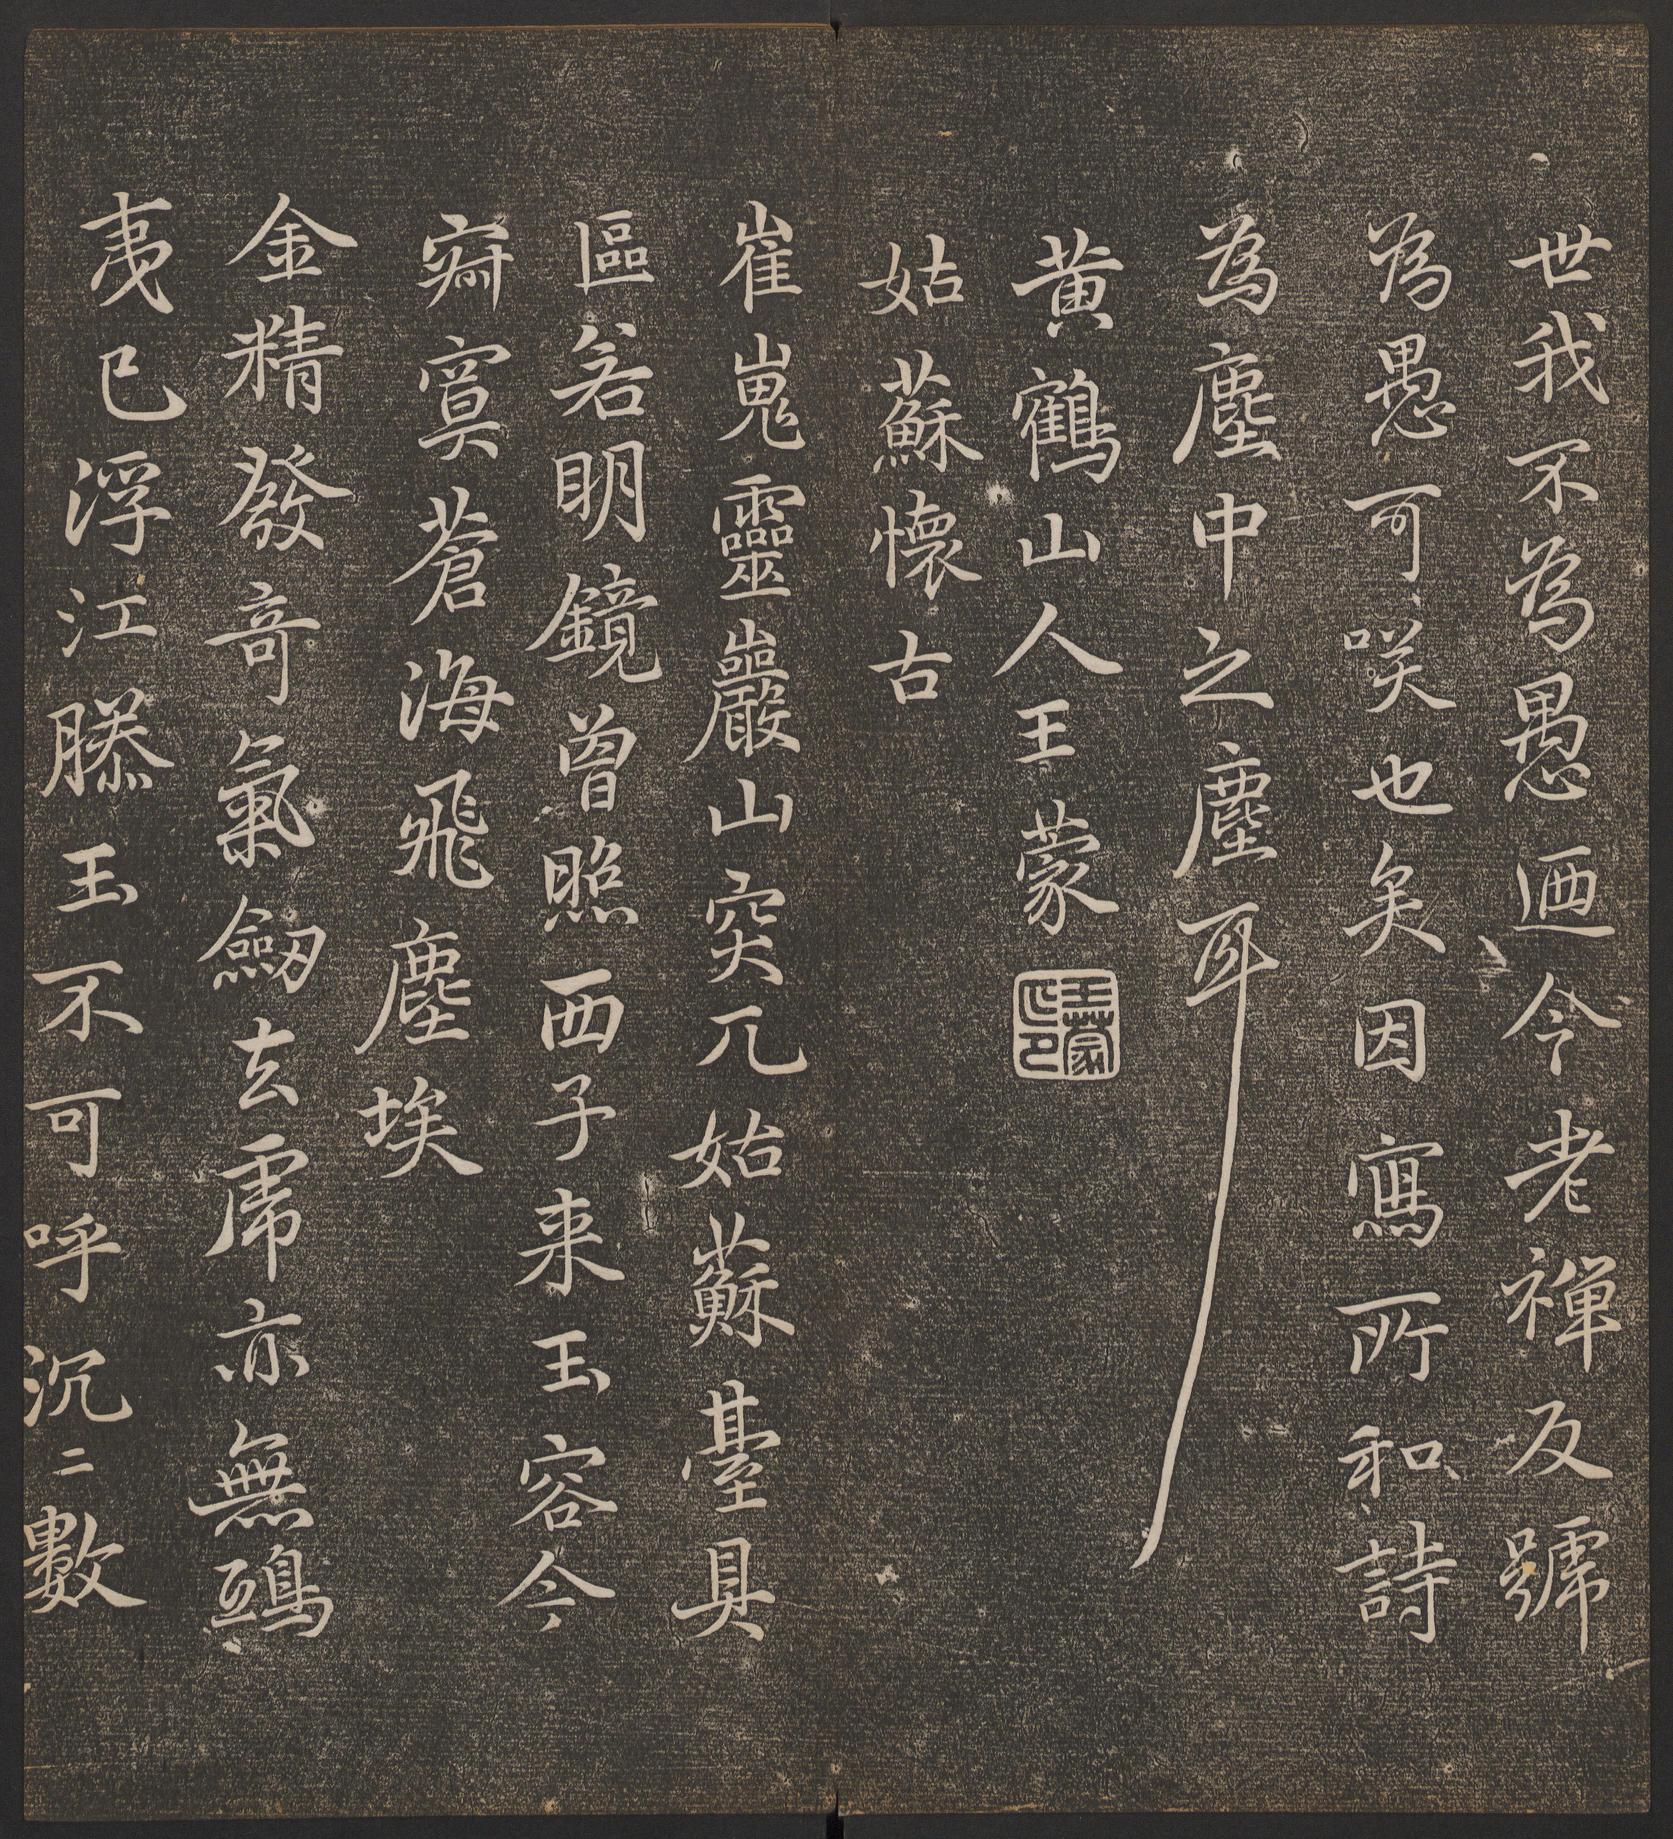 世我不為愚迺今老禪反號
為愚可咲也矣因寫所和詩
為塵中之塵耳
黃鶴山人王蒙 王蒙之印
姑蘇懷古
崔嵬靈巖山突兀姑蘇臺具
區若明鏡曾照西子來玉容今
寂寞蒼海飛塵埃
金精發奇氣劒去席亦無鴟
夷已浮江滕玉不可呼沉二數